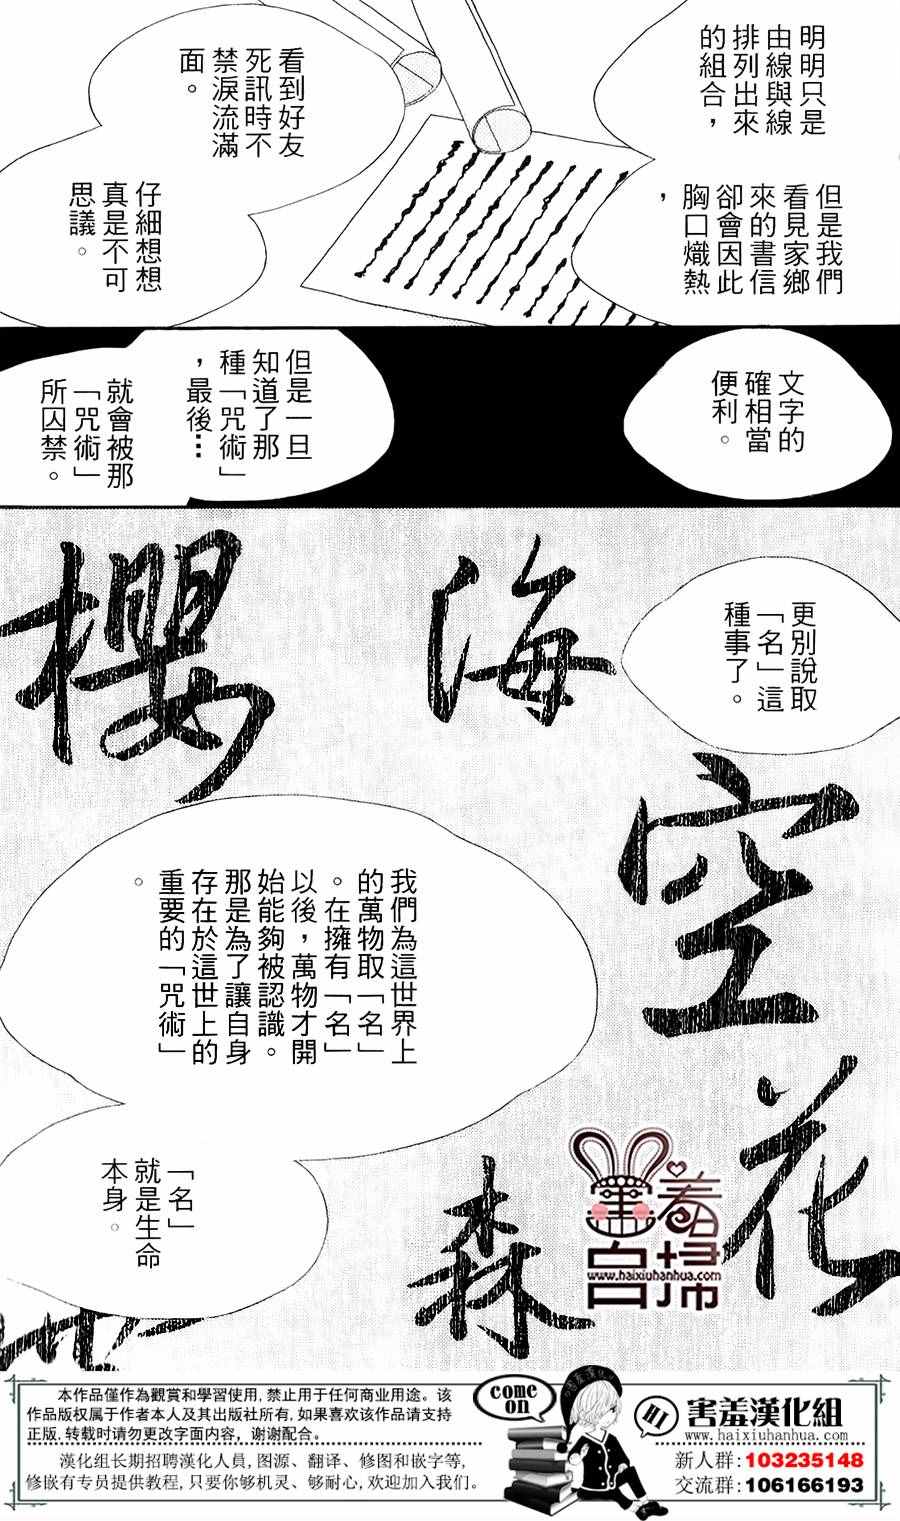 明明只是
由線與線
排列出來
的組合，
但是我們
看見家鄉
來的書信
卻會因此
胸口熾熱
，
看到好友
死訊時不
禁淚流滿
面。
仔細想想
真是不可
思議。
文字的
確相當
便利。
但是一旦
知道了那
種「咒術」
，最後…
就會被那
「咒術」
所囚禁。
更別說取
「名」這
種事了。
海
櫻
空
花
森
我們為這世界上
的萬物取「名」
。在擁有「名」
以後，萬物才開
始能夠被認識。
那是為了讓自身
存在於這世上的
重要的「咒術」
。
「名」
就是生命
本身。
害羞
www.haixiuhanhua.com
本作品僅作為觀賞和學習使用，禁止用于任何商业用途。该
作品版权属于作者本人及其出版社所有，如果喜欢该作品请支持
正版，转载时请勿更改字面内容，谢谢配合。
漢化组长期招聘漢化人員，图源、翻译、修图和嵌字等，
修嵌有专员提供教程，只要你够机灵、够耐心，欢迎加入我们。
come
on
HI
害羞漢化組
www.haixiuhanhua.com
新人群：103235148
交流群：106166193